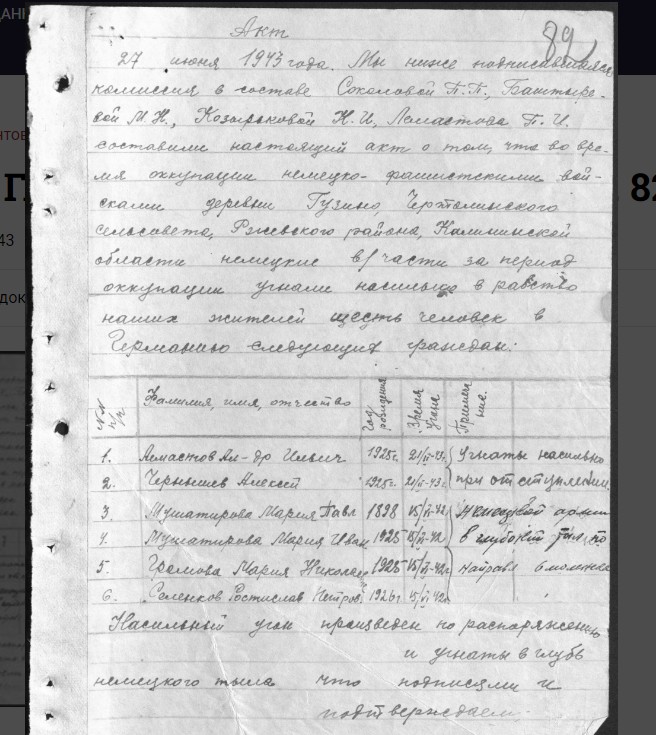 Акт
89
27 июня 1943 года. Мы ниже подписавшаяся
комиссия в составе Соколовой П.П., Баштыре-
вой М.Н., Козырьковой Н.И., Ломастова П.И.
составили настоящий акт о том, что во вре-
мя оккупации немецко-фашистскими вой-
сками деревни Гузино, Чертолинского
сельсовета, Ржевского района, Калининской
области немецкие в/части за период
оккупации угнали насильно в рабство
наших жителей шесть человек в
Германию следующих граждан:
№№ п/п Фамилия, имя, отчество Год рождения Время угона Примечание.
1. Ал-др Ильич 1925г. 21/II-43г. Угнаты насильно
2. Чернышев Алексей 1925г. 21/II-43г. при отступлении
3. Мушатирова Мария Павл 1898 15/VI-42г. немецкой армии
4. Мушатирова Мария Иван 1925 15/VI-42 в глубокий тыл, по
5. Громова Мария Николаев 1925 15/VI-42г. направл Смоленска
6. Селенков Ростислав Петров 1926г 15/VI-42г.
Насильный угон произведен по распоряжению
и угнаты в глубь
немецкого тыла что подписями и
подтверждаем.